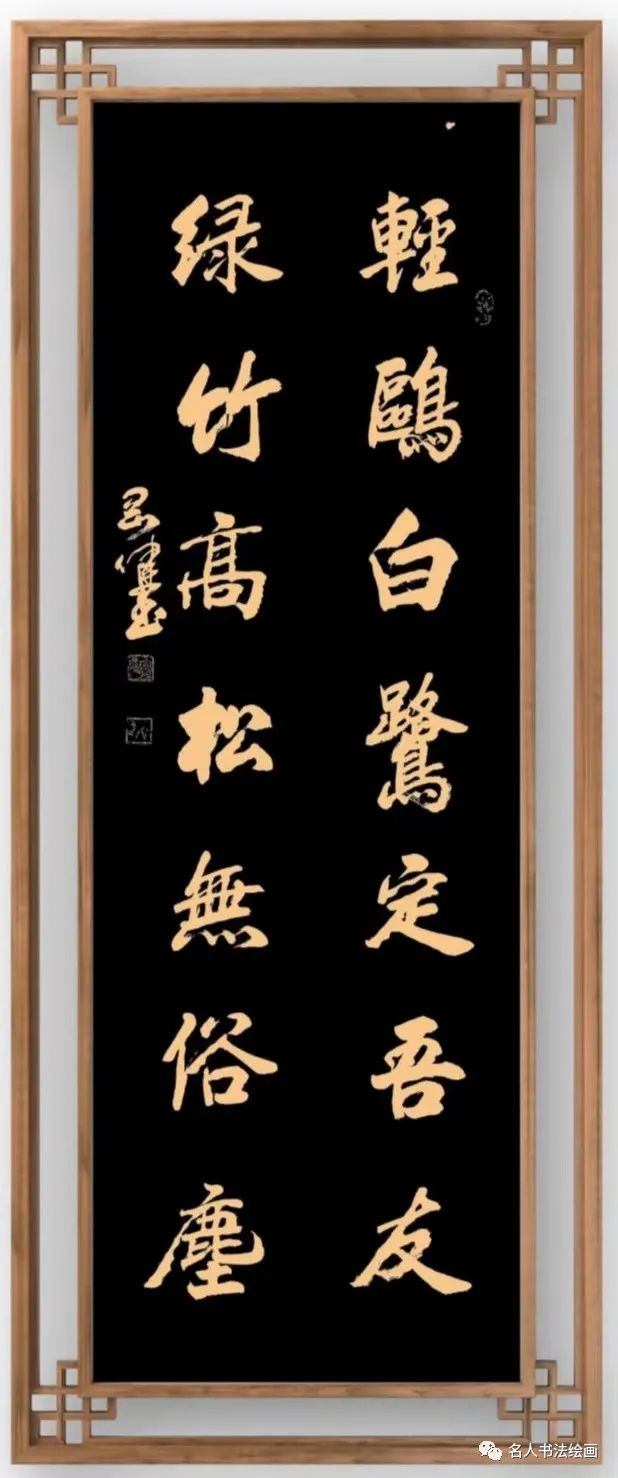 輕鷗白鷺定吾友
绿竹高松無俗塵
名人书法绘画